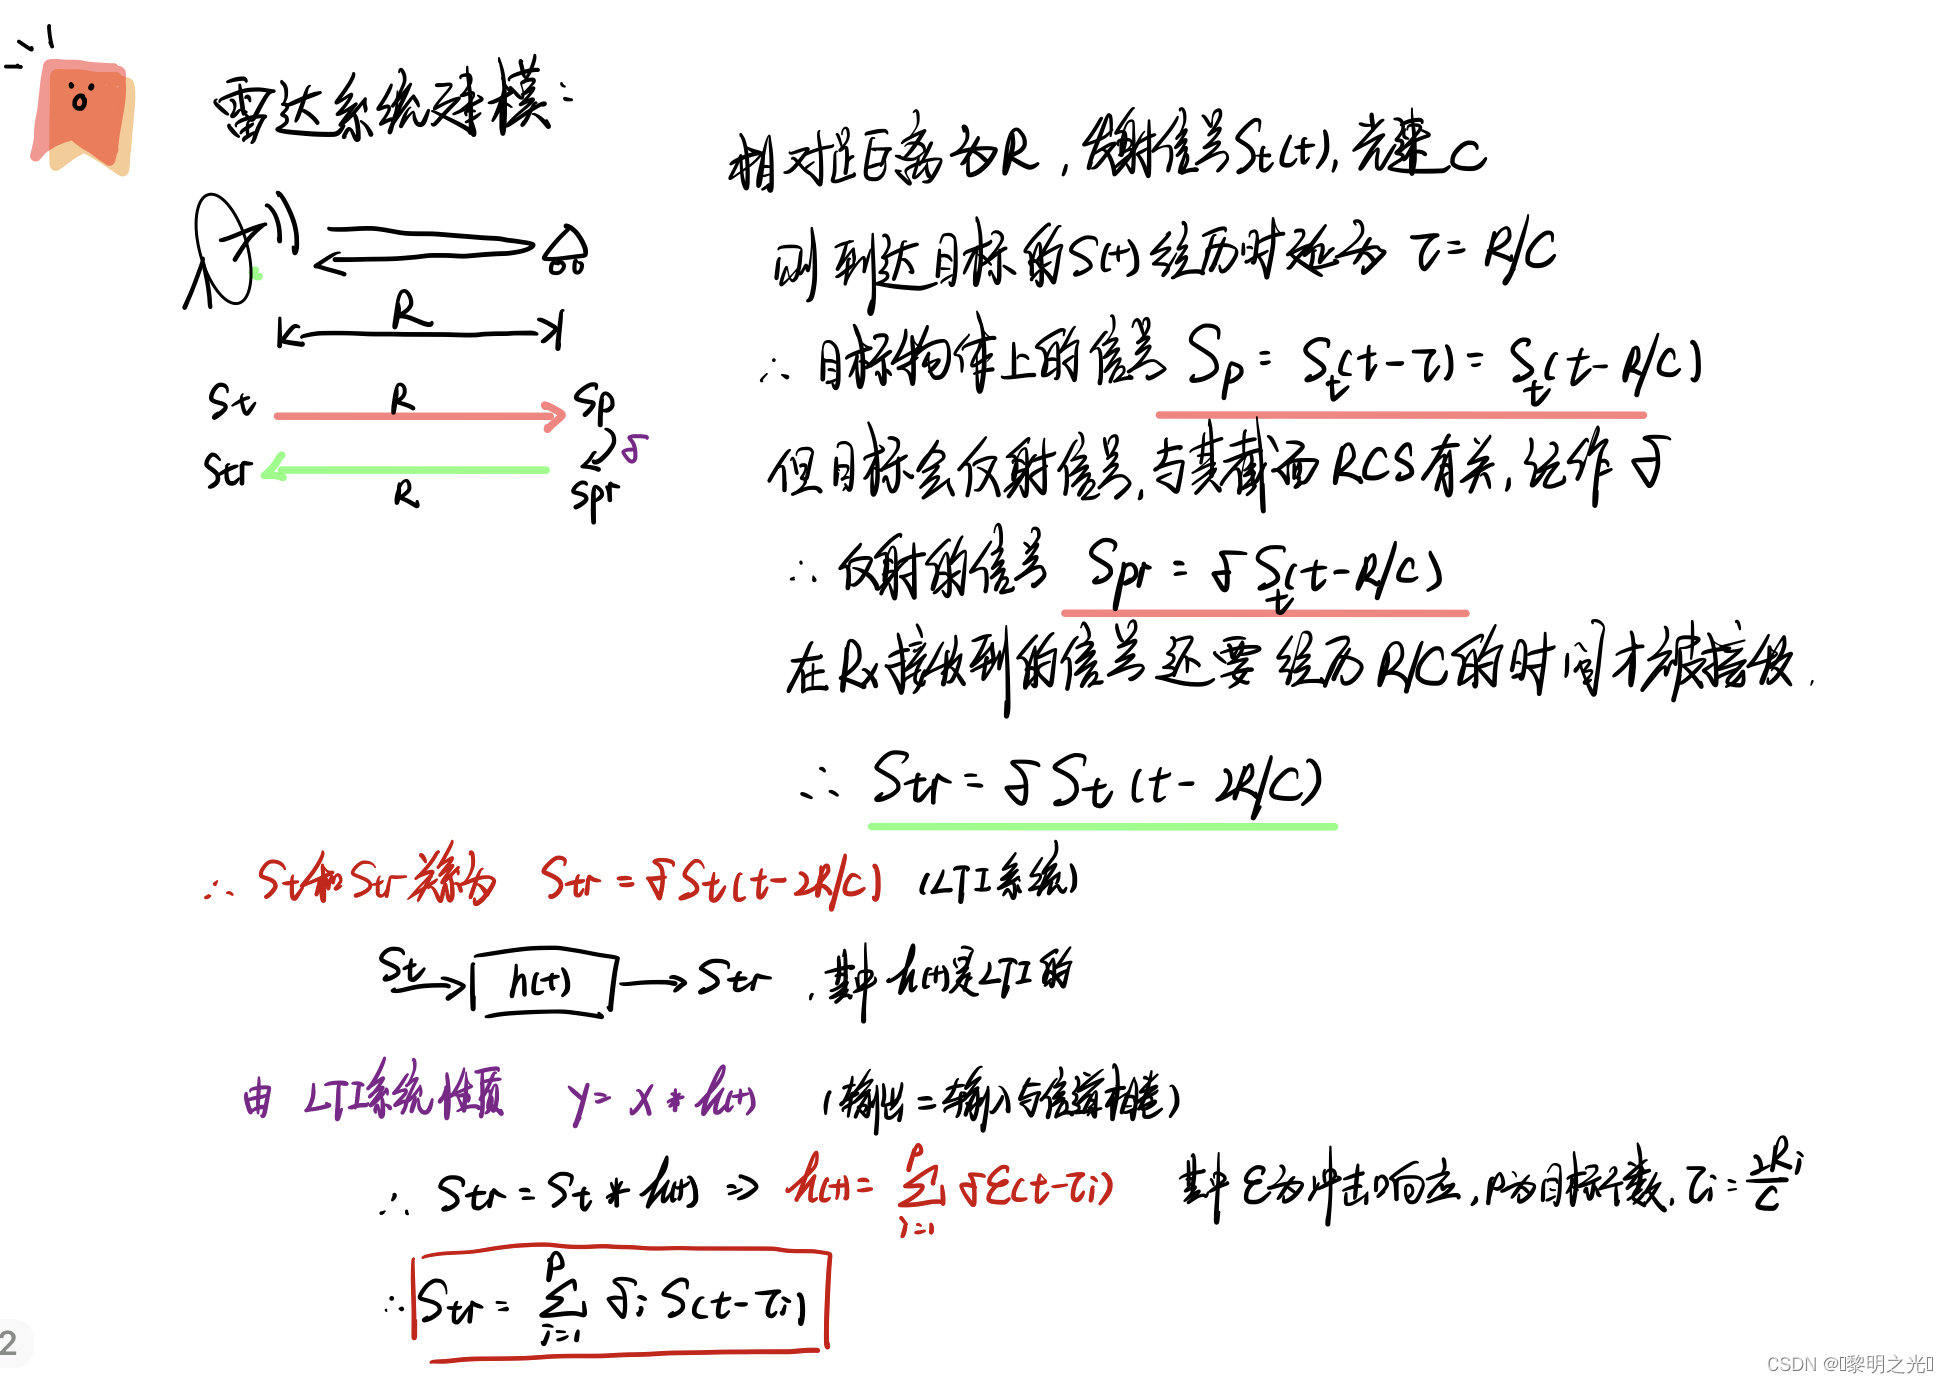 雷达系统建模:
相对距离为R,发射信号St(t),光速C
则到达目标的S(t)经历时延为 τ=R/C
R
∴目标物体上的信号 Sp = St(t-τ) = St(t-R/C)
St R Sp
δ
Str R Spr
但目标会反射信号,与其截面RCS有关,记作 δ
∴反射的信号 Spr = δSt(t-R/C)
在Rx接收到的信号还要经历R/C的时间才被接收.
∴ Str = δSt(t-2R/C)
∴ St和Str关系为 Str = δSt(t-2R/C) (LTI系统)
St h(t) Str ,其中h(t)是LTI的
由 LTI系统性质 y = x * h(t) (输出=输入与信道相卷)
∴ Str = St * h(t) ⇒ h(t) = ∑_{i=1}^{P} δε(t-τi) 其中ε为冲击响应,P为目标个数,τi = 2Ri/C
∴ Str = ∑_{i=1}^{P} δi S(t-τi)
2
CSDN @黎明之光